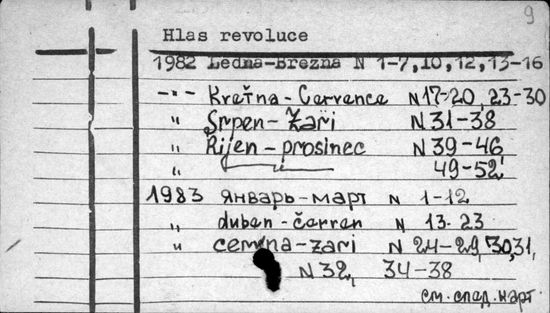 9
Hlas revoluce
1982 Ledna-Března N 1-7, 10, 12, 13-16
-"- Kvetňa-Července N 17-20, 23-30
" Srpen-Zaři N 31-38
" Rijen-prosinec N 39-46
" 49-52
1983 январь-март N 1-12
" duben-červen N 13-23
" cemňna-zaři N 24-29, 30, 31,
N 32, 34-38
см. след. карт.